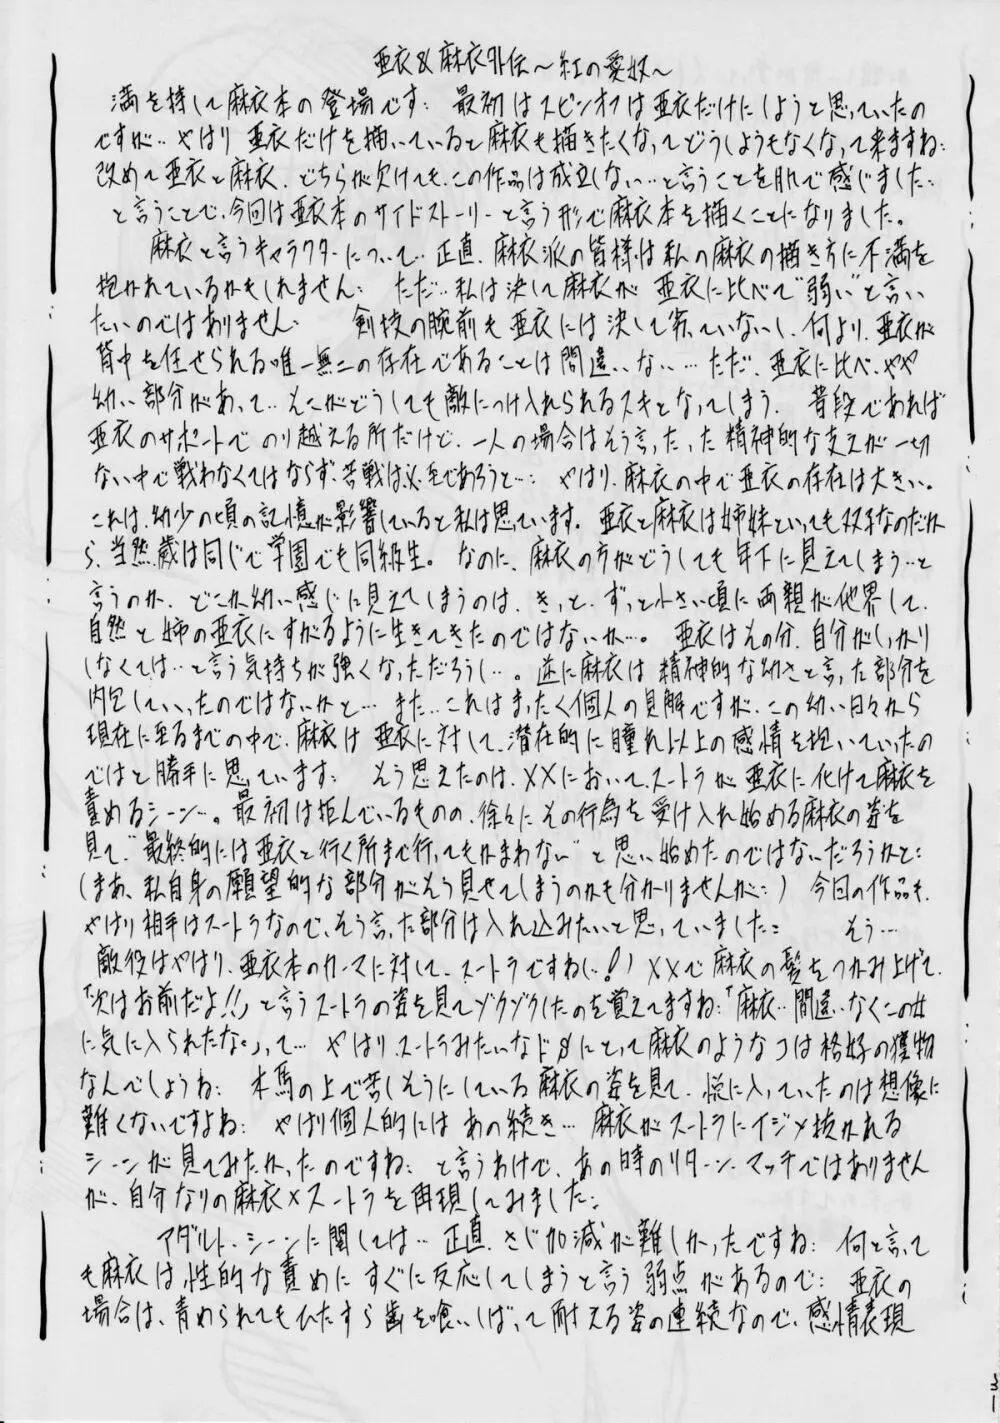 亜衣&麻衣外伝～紅の愛奴～
満を持して麻衣本の登場です: 最初はスピンオフは亜衣だけにしようと思っていたの
ですが‥やはり 亜衣だけを描いていると麻衣も描きたくなってどうしようもなくなって来ますね:
改めて亜衣と麻衣、どちらが欠けても、この作品は成立しない‥と言うことを肌で感じました:
と言うことで、今回は亜衣本のサイドストーリーと言う形で麻衣本を描くことになりました。
麻衣と言うキャラクターについて‥正直、麻衣派の皆様は私の麻衣の描き方に不満を
抱かれているかもしれません: ただ‥私は決して麻衣が 亜衣に比べて“弱い”と言い
たいのではありません: 剣技の腕前も亜衣には決して劣っていないし、何より、亜衣が
背中を任せられる唯一無二の存在であることは間違いない… ただ、亜衣に比べ、やや
幼い部分があって‥そこがどうしても敵につけ入れられるスキとなってしまう。 普段であれば
亜衣のサポートで のり越える所だけど、一人の場合はそう言った、た精神的な支えが一切
ない中で戦わなくてはならず、苦戦は必毛であろうと…: やはり、麻衣の中で亜衣の存在は大きい。
これは、幼少の頃の記憶が影響していると私は思っています。 亜衣と麻衣は姉妹といっても双子なのだか
ら、当然歳は同じで学園でも同級生。 なのに、麻衣の方がどうしても年下に見えてしまう‥と
言うのか、どこか幼い感じに見えてしまうのは、きっと、ずっと小さい頃に両親が他界して、
自然と姉の亜衣にすがるように生きてきたのではないか…。 亜衣はその分、自分がしっかり
しなくては‥と言う気持ちが強くなっただろうし…。逆に麻衣は精神的な幼さと言った部分を
内包していったのではないかと… また‥これはまったく個人の見解ですが、この幼い日々から
現在に至るまでの中で、麻衣は亜衣に対して、潜在的に憧れ以上の感情を抱いていったの
ではと勝手に思っています: そう思えたのは、××において、スートラが亜衣に化けて麻衣を
責めるシーン…。最初は拒んでいるものの、徐々にその行為を受け入れ始める麻衣の姿を
見て“最終的には亜衣と行く所まで行ってもかまわない”と思い始めたのではないだろうかと:
(まあ、私自身の願望的な部分がそう見せてしまうのかも分かりませんが:) 今回の作品も、
やはり相手はスートラなので、そう言った部分は入れ込みたいと思っていました: そう…
敵役はやはり、亜衣本のカーマに対して、スートラですねし‥!) ××で麻衣の髪をつかみ上げて、
「次はお前だよ!!」と言うスートラの姿を見てゾクゾクしたのを覚えてますね:「麻衣‥間違いなくこの女
に気に入られたな。」って… やはりスートラみたいなドSにとって麻衣のようなコは格好の獲物
なんでしょうね: 木馬の上で苦しそうにしている麻衣の姿を見て、悦に入っていたのは想像に
難くないですよね: やはり個人的にはあの続き… 麻衣がスートラにイジメ抜かれる
シーンが見てみたかったのですね: と言うわけで、あの時のリターン・マッチではありません
が、自分なりの麻衣×スートラを再現してみました:
アダルト・シーンに関しては‥正直、さじ加減が難しかったですね: 何と言って
も麻衣は性的な責めにすぐに反応してしまうと言う弱点があるので: 亜衣の
場合は、責められてもひたすら歯を喰いしばって耐える姿の連続なので、感情表現
31